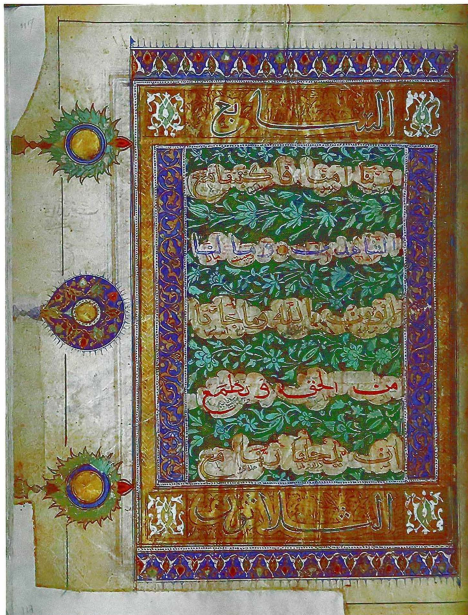 السابع
ربنا امنا فاكتبنا مع
الشاهدين وما لنا
لا نؤمن بالله وما جاءنا
من الحق ونطمع
ان يدخلنا ربنا مع
الثلاثون